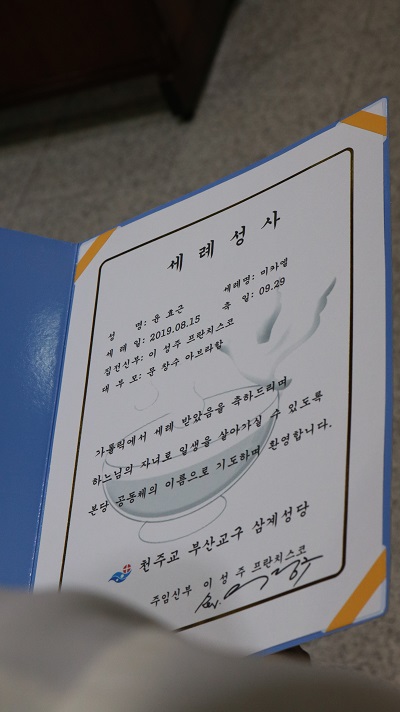 세례성사
성 명: 윤 효근 세례명: 미카엘
세 례 일: 2019.08.15 축 일: 09.29
집전신부: 이 성주 프란치스코
대 부 모: 문 창수 아브라함
가톨릭에서 세례 받았음을 축하드리며
하느님의 자녀로 일생을 살아가실 수 있도록
본당 공동체의 이름으로 기도하며 환영합니다.
천주교 부산교구 삼계성당
주임신부 이 성 주 프란치스코